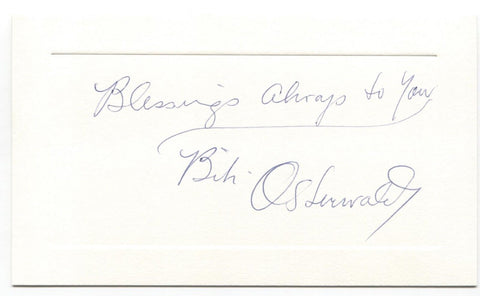 Blessings Always to You
Bibi Osterwald